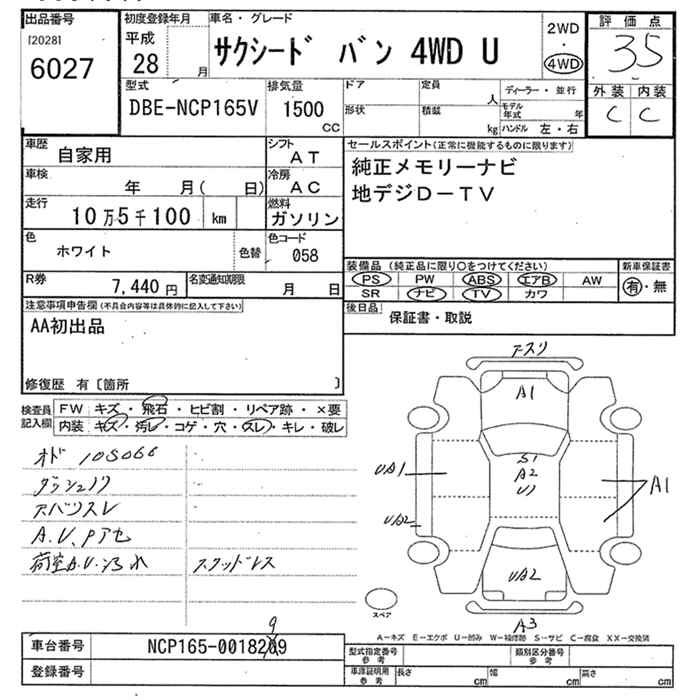 出品番号
[2028]
6027
初度登録年月
平成
28 月
車名・グレード
サクシード バン 4WD U
2WD
・
4WD
評価点
3.5
外装 内装
C C
型式
DBE-NCP165V
排気量
1500
CC
ドア
形状
定員
人
積載
kg
ディーラー・並行
モデル年式 年
ハンドル 左・右
車歴
自家用
シフト
AT
車検
年 月( 日)
冷房
AC
走行
10万5千100 km
燃料
ガソリン
色
ホワイト
色替
色コード
058
R券
7,440円
名変通知期限
月 日
セールスポイント(正常に機能するものに限ります)
純正メモリーナビ
地デジD-TV
装備品(純正品に限り○をつけてください)
PS PW ABS エアB AW
SR ナビ TV カワ
新車保証書
有・無
後日品
保証書・取説
注意事項申告欄(不具合内容等は具体的に記入して下さい)
AA初出品
修復歴 有〔箇所 〕
検査員
記入欄
FW キズ・飛石・ヒビ割・リペア跡・×要
内装 キズ・汚レ・コゲ・穴・スレ・キレ・破レ
オド 105066
ダッシュ
A.U.Pアセ
荷室A.U.
A1
S1
A2
U1
UA1
UA2
A1
UA2
スペア
A3
A-キズ E-エクボ U-凹み W-補修跡 S-サビ C-腐食 XX-交換済
車台番号
NCP165-0018209
9
登録番号
型式指定番号
参考
類別区分番号
参考
車庫証明用
参考
長さ cm
幅 cm
高さ cm